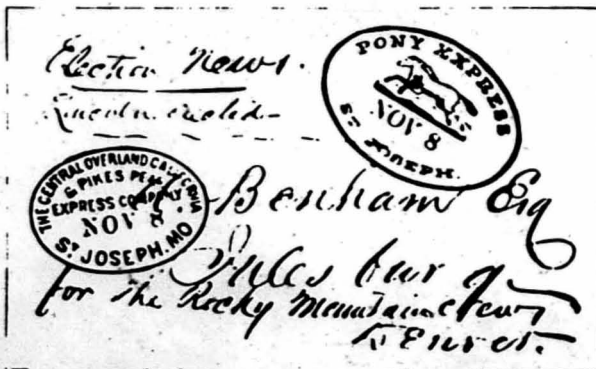 Election News.
Lincoln elected
PONY EXPRESS
NOV 8
ST JOSEPH.
THE CENTRAL OVERLAND CALIFORNIA
& PIKES PEAK
EXPRESS COMPANY
NOV 8
ST JOSEPH. MO
Benham Esq
Jules burg
for the Rocky Mountain News
Denver.